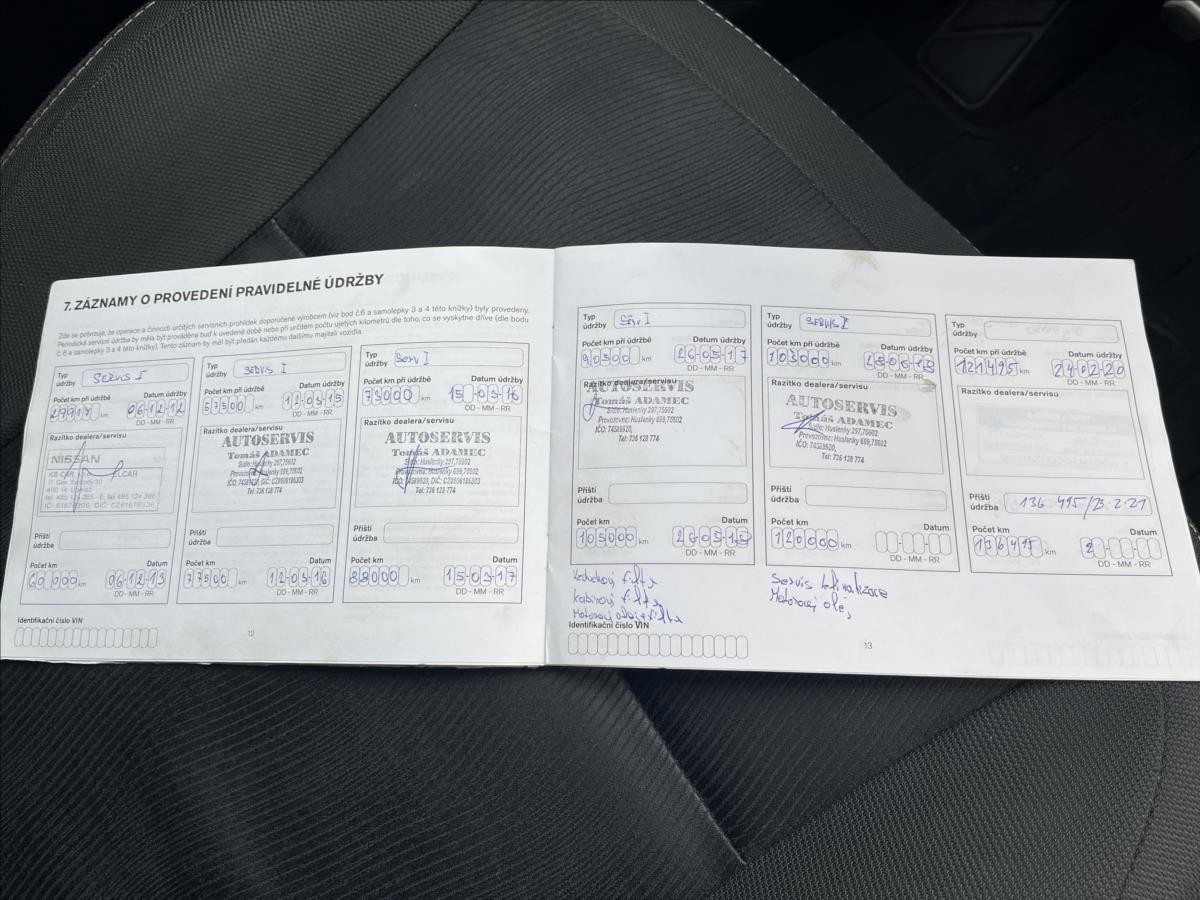 7. ZÁZNAMY O PROVEDENÍ PRAVIDELNÉ ÚDRŽBY
Zde se potvrzuje, že operace a činnosti určitých servisních prohlídek doporučené výrobcem (viz bod č.6 a samolepky 3 a 4 této knížky) byly provedeny.
Periodické servisní údržba by měla být prováděna buď k uvedené době nebo při určitém počtu ujetých kilometrů dle toho, co se vyskytne dříve (dle bodu
č.6 a samolepky 3 a 4 této knížky). Tento záznam by měl být předán každému dalšímu majiteli vozidla.
Typ údržby SERVIS I
Počet km při údržbě Datum údržby
km 06-12-12
DD - MM - RR
Razítko dealera/servisu
NISSAN
Příští údržba
Počet km Datum
60 000 km 06-12-13
DD - MM - RR
Typ údržby SERVIS I
Počet km při údržbě Datum údržby
57500 km 12-03-15
DD - MM - RR
Razítko dealera/servisu
AUTOSERVIS
Tomáš ADAMEC
Sídlo: Huslenky 297,75602
Provozovna: Huslenky 699,75602
IČO: 74589920, DIČ: CZ8606186303
Tel: 736 128 774
Příští údržba
Počet km Datum
77500 km 12-03-16
DD - MM - RR
Typ údržby SERV I
Počet km při údržbě Datum údržby
73000 km 15-03-16
DD - MM - RR
Razítko dealera/servisu
AUTOSERVIS
Tomáš ADAMEC
Sídlo: Huslenky 297,75602
Provozovna: Huslenky 699,75602
IČO: 74589920, DIČ: CZ8606186303
Tel: 736 128 774
Příští údržba
Počet km Datum
88000 km 15-03-17
DD - MM - RR
Identifikační číslo VIN
12
Typ údržby SERV I
Počet km při údržbě Datum údržby
90500 km 26-05-17
DD - MM - RR
Razítko dealera/servisu
AUTOSERVIS
Tomáš ADAMEC
Sídlo: Huslenky 297,75602
Provozovna: Huslenky 699,75602
IČO: 74589920,
Tel: 736 128 774
Příští údržba
Počet km Datum
105000 km 26-05-18
DD - MM - RR
Vzduchový filtr
Kabinový filtr
Motorový olej + filtr
Identifikační číslo VIN
Typ údržby SERVIS I
Počet km při údržbě Datum údržby
103000 km
DD - MM - RR
Razítko dealera/servisu
AUTOSERVIS
Tomáš ADAMEC
Sídlo: Huslenky 297,75602
Provozovna: Huslenky 699,75602
IČO: 74589920,
Tel: 736 128 774
Příští údržba
Počet km Datum
120000 km
DD - MM - RR
Servis klimatizace
Motorový olej
Typ údržby
Počet km při údržbě Datum údržby
121495 km 24-02-20
DD - MM - RR
Razítko dealera/servisu
Příští údržba 136 495/23.2.21
Počet km Datum
136495 km 2
DD - MM - RR
13